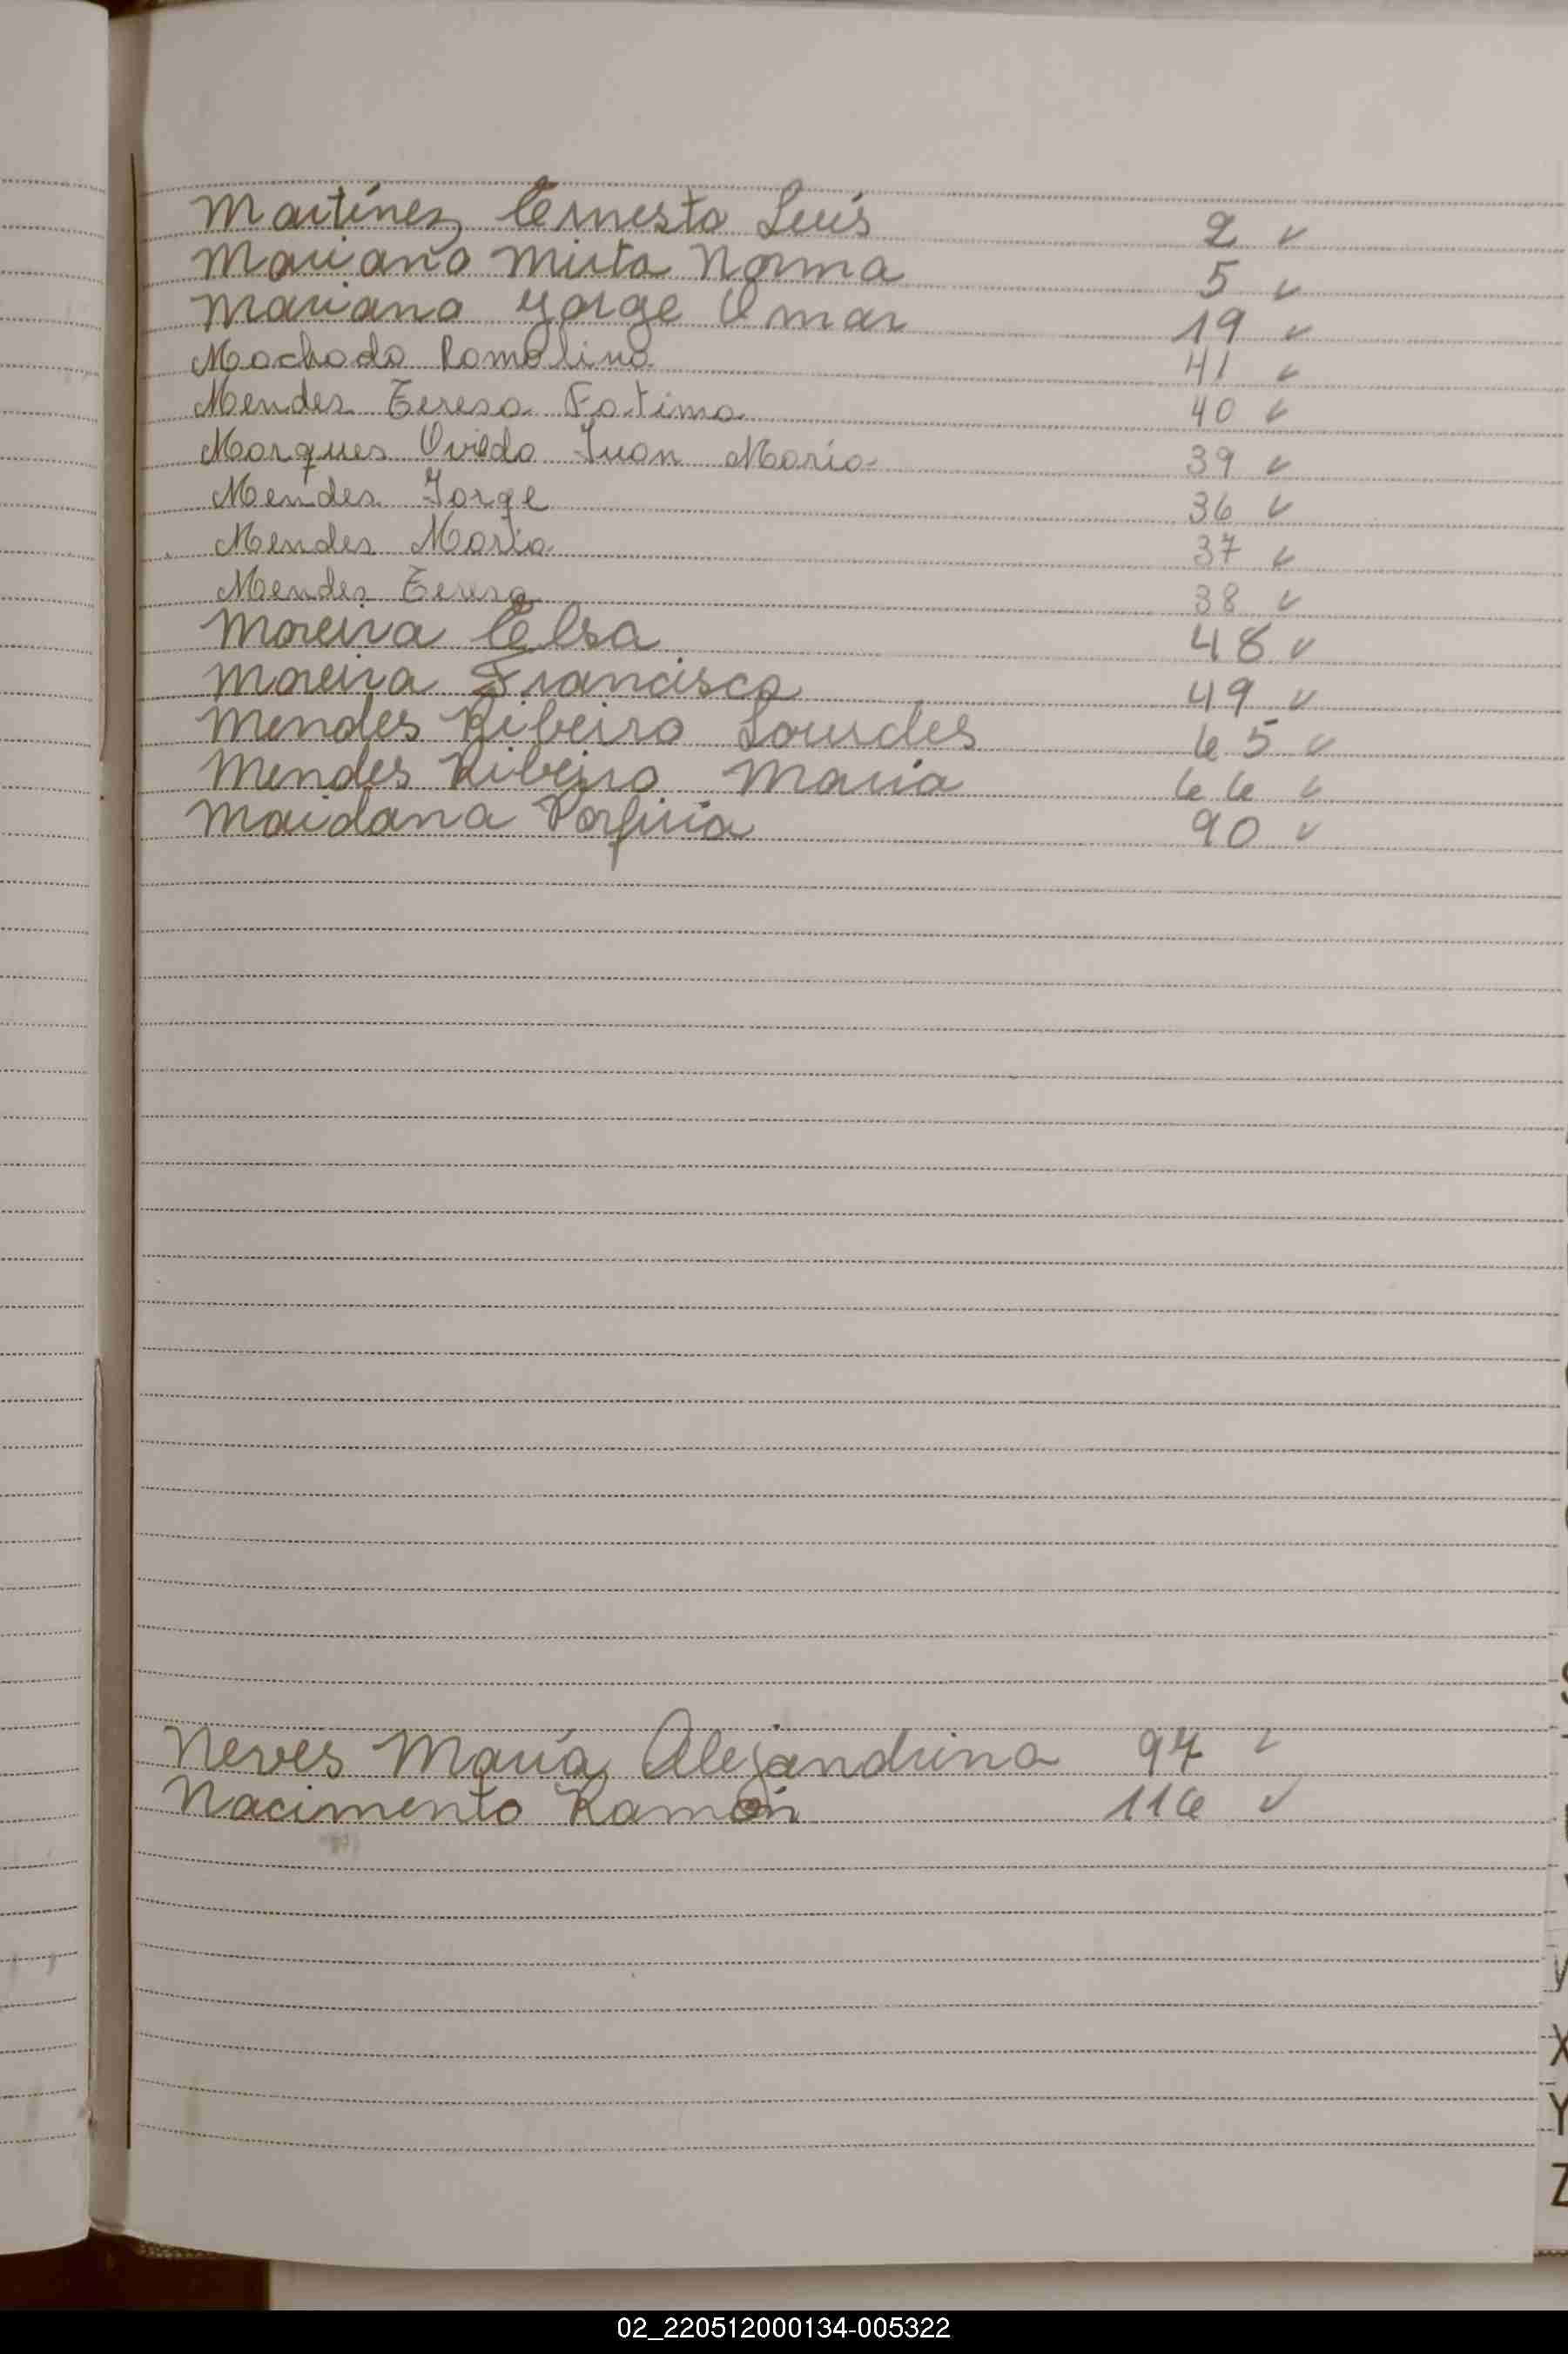 Martínez Ernesto Luís 2 ✓
Mariano Mirta Norma 5 ✓
Mariano Jorge Omar 19 ✓
Machado Romalino 41 ✓
Mendes Teresa Fatima 40 ✓
Marques Oviedo Juan María 39 ✓
Mendes Jorge 36 ✓
Mendes María 37 ✓
Mendes Teresa 38 ✓
Moreira Elsa 48 ✓
Moreira Francisco 49 ✓
Mendes Ribeiro Lourdes 65 ✓
Mendes Ribeiro María 66 ✓
Maidana Porfiria 90 ✓
Neves María Alejandrina 97 ✓
Nacimento Ramón 116 ✓
X
Y
Z
02_220512000134-005322